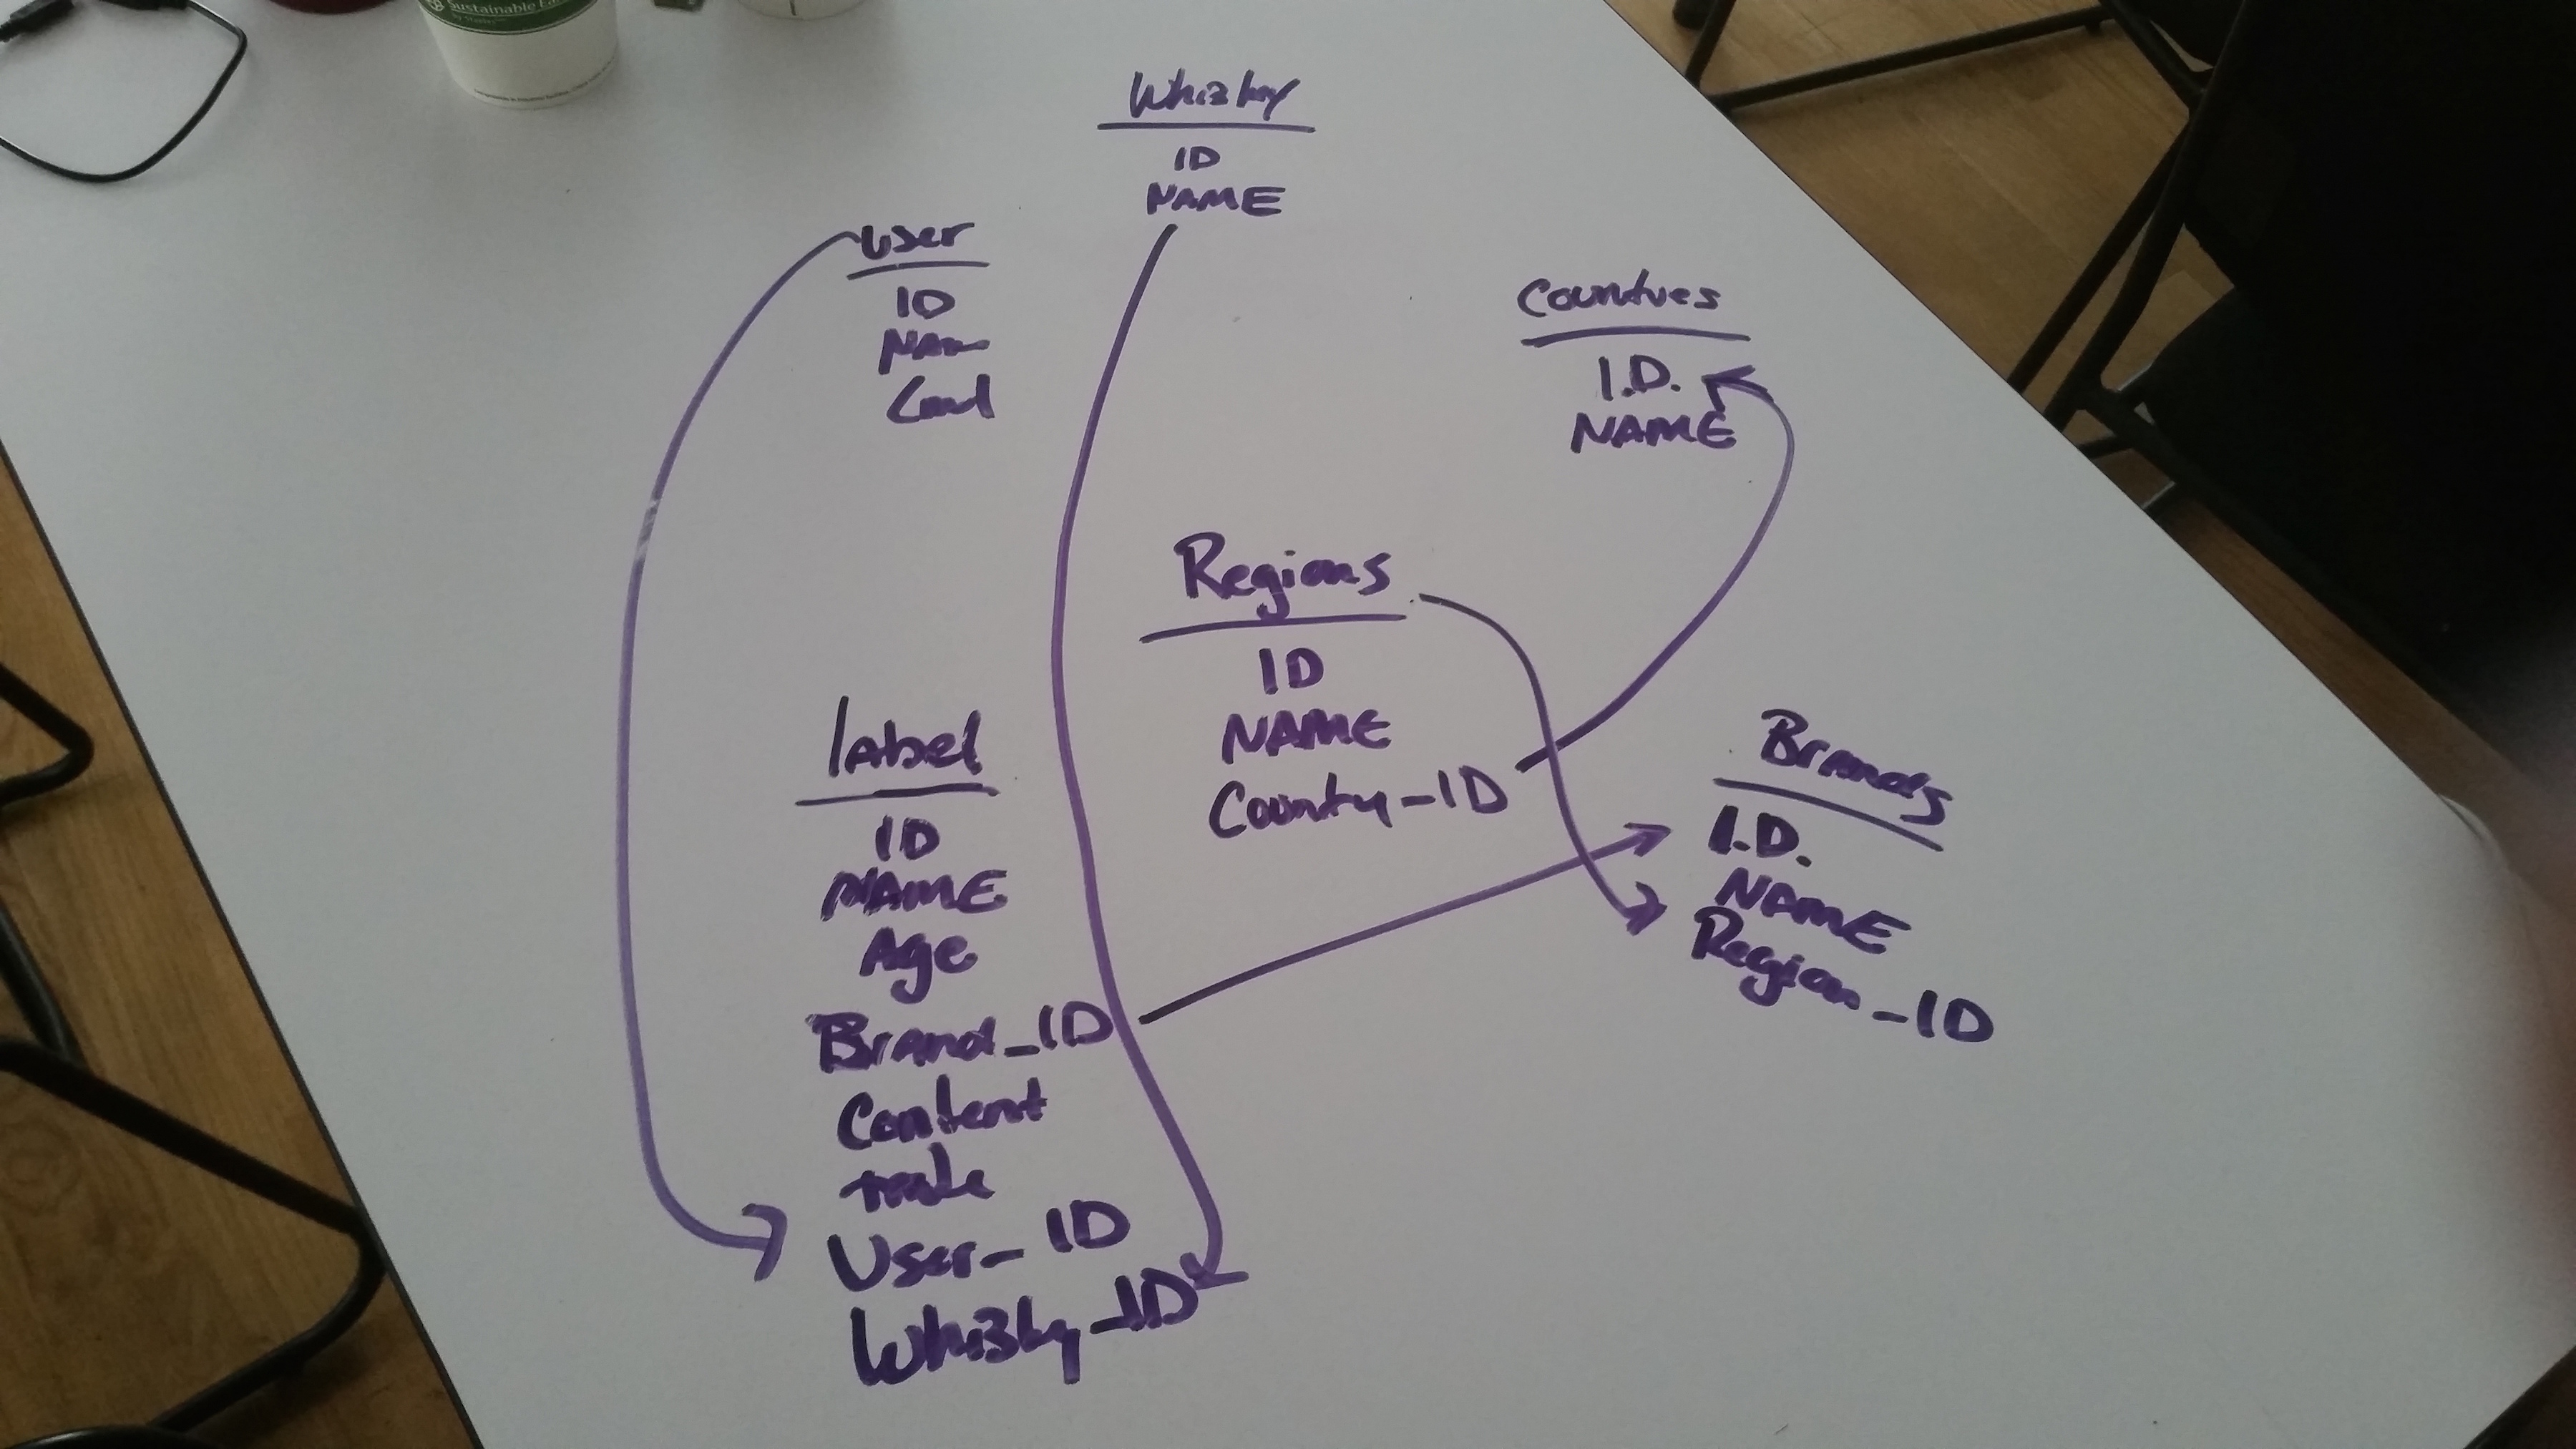 Sustainable Ea
Whisky
ID
NAME
User
ID
Nam
Countries
I.D.
NAME
Regions
ID
NAME
Country_ID
label
ID
NAME
Age
Brand_ID
Content
User_ID
Whisky_ID
Brands
I.D.
NAME
Region_ID